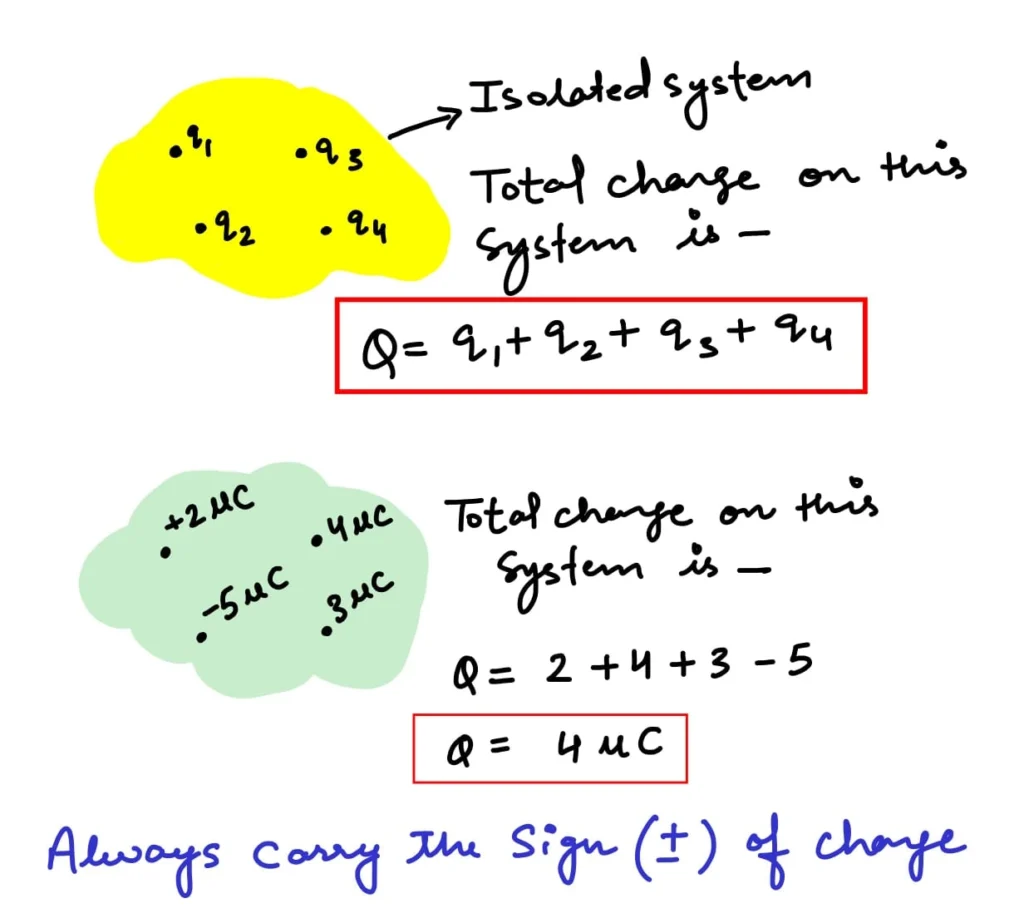 Isolated system
q1 q3
q2 q4
Total charge on this
system is –
Q = q1 + q2 + q3 + q4
+2 μC
4 μC
-5 μC
3 μC
Total charge on this
system is –
Q = 2 + 4 + 3 - 5
Q = 4 μC
Always carry the sign (±) of charge